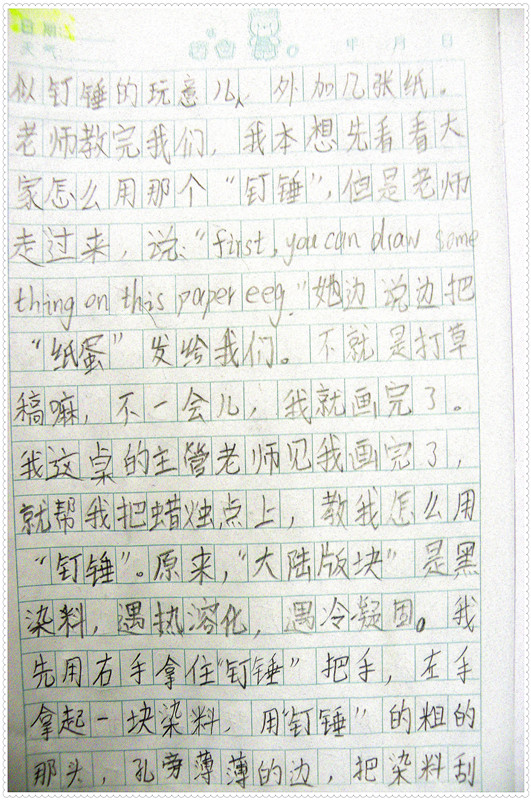 年 月 日
似钉锤的玩意儿,外加几张纸。
老师教完我们,我本想先看看大
家怎么用那个“钉锤”,但是老师
走过来,说:“first, you can draw some
thing on this paper eeg.”她边说边把
“纸蛋”发给我们。不就是打草
稿嘛,不一会儿,我就画完了。
我这桌的主管老师见我画完了,
就帮我把蜡烛点上,教我怎么用
“钉锤”。原来,“大陆版块”是黑
染料,遇热溶化,遇冷凝固。我
先用右手拿住“钉锤”把手,左手
拿起一块染料,用“钉锤”的粗的
那头,孔旁薄薄的边,把染料刮